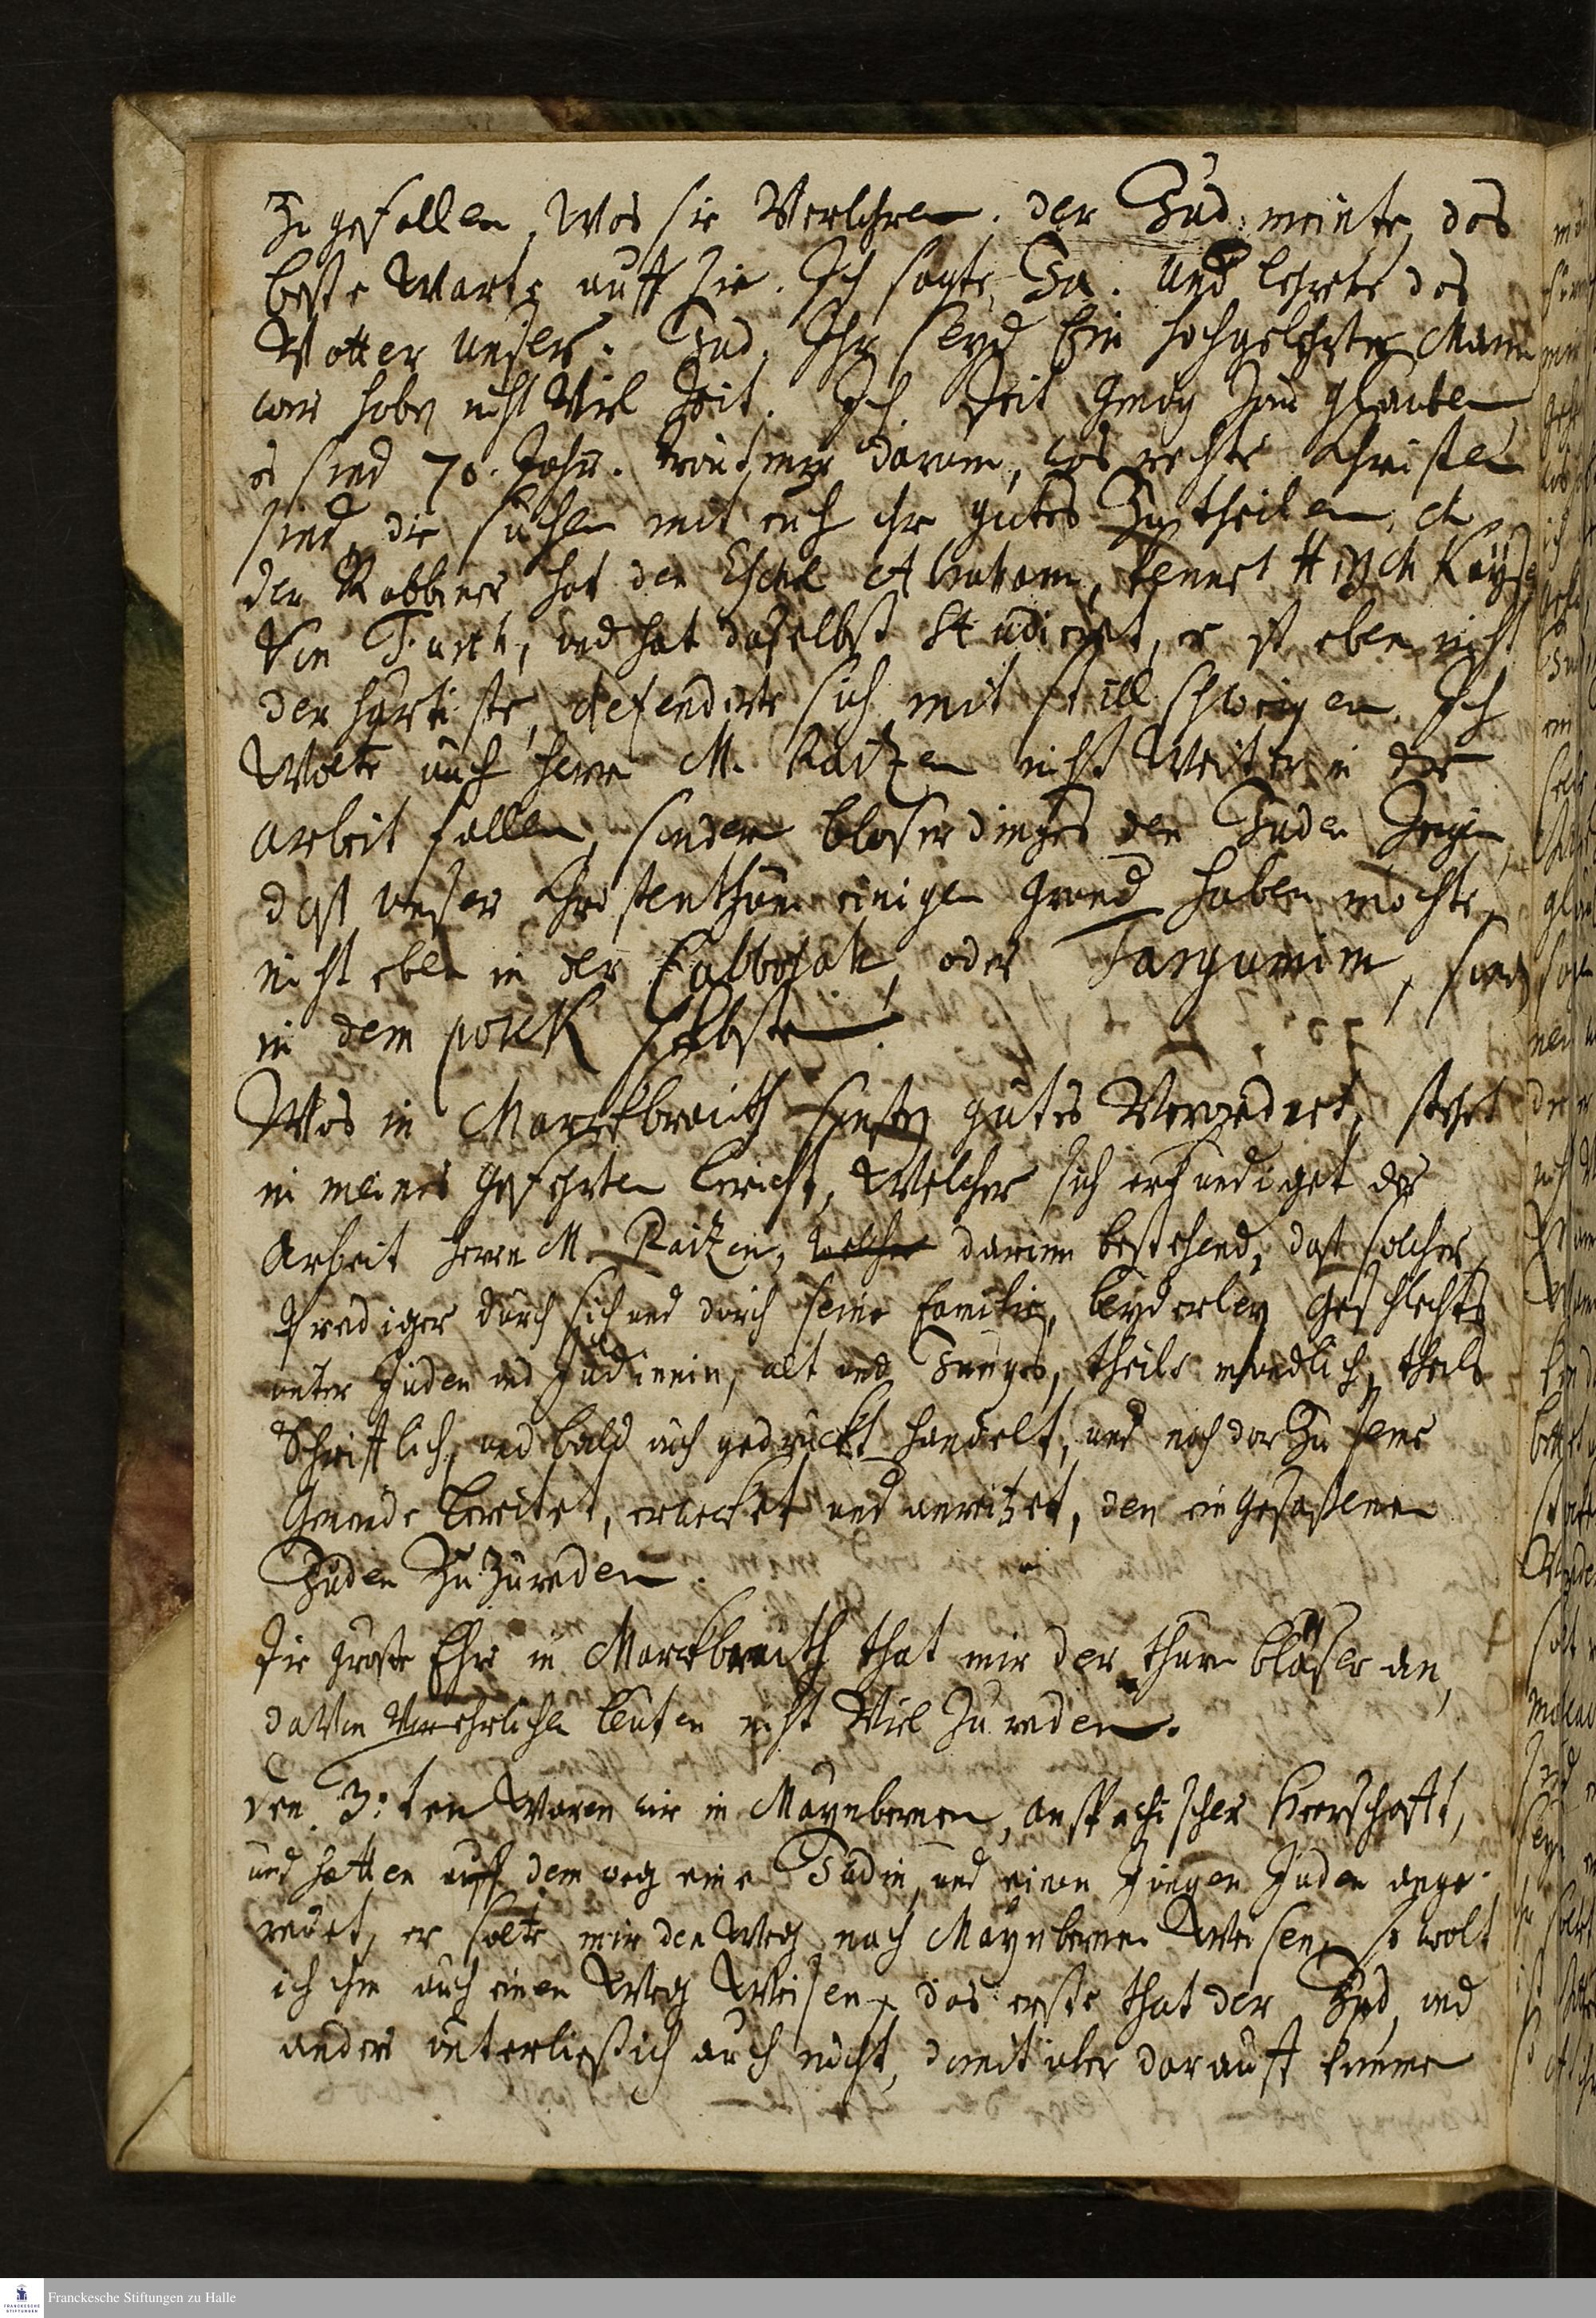 Zu gefallen, Was sie Verlohren. der Jud meinte, das
beste Warte auff Sie. Ich sagte, Ja. Und lehrete das
Vatter unser. Jud, Ihr seyd Ein hochgelehrter Mann
wir haben nicht Viel Zeit. Ich. Zeit genug zum glauben
es sind 70. Jahr. darum, das rechte Christen
sind, die suchen mit euch ihr gutes Zu theilen,
der Rabbiner hat den Eschel Abraham, kennet
Von Furth, und hat daselbst Studieret, er ist eben nicht
der härtiste, defendirte sich mit still schweigen. Ich
Wolte auch herrn M. Raitzen nicht Weiter in die
arbeit fallen, sondern bloserdinges den Juden Zeigen,
daß unser Christenthum einigen grund haben möchte,
nicht eben in der Cabbalah, oder Targumim, sondern
in dem posuk selbste.
Was in Marckbreith sonsten gutes Verordnet, stehet
in meines Gefehrten bericht, Welcher sich erkundiget der
Arbeit herrn M. Raitzen, welcher darinn bestehend, daß solcher
Prediger durch sich und durch seine Familie, beyderley geschlechts
unter Juden und Judinnin, alt und Junges, theils mündlich, theils
Schrifftlich, und bald auch gedruckt handelt, und noch dar Zu seine
Gemeinde bereitet, erwecket und anreitzet, den eingesaßenen
Juden Zu Zureden.
Die große Ehre in Marckbreith that mir der thurn bläser an,
daVon Vor ehrlichen leuten nicht Viel Zu reden.
Den 3:ten Waren wir in Maynbernen, anspachischer Herrschafft,
und hatten auff dem weg eine Judin, und einen Jungen Juden ange-
redet, er solte mir den Weg nach Maynbernen Weisen, so wolt
ich ihm auch einen Weg Weisen, das erste that der Jud, und
anders unterließ ich auch nicht, damit aber darauff komme
Franckesche Stiftungen zu Halle